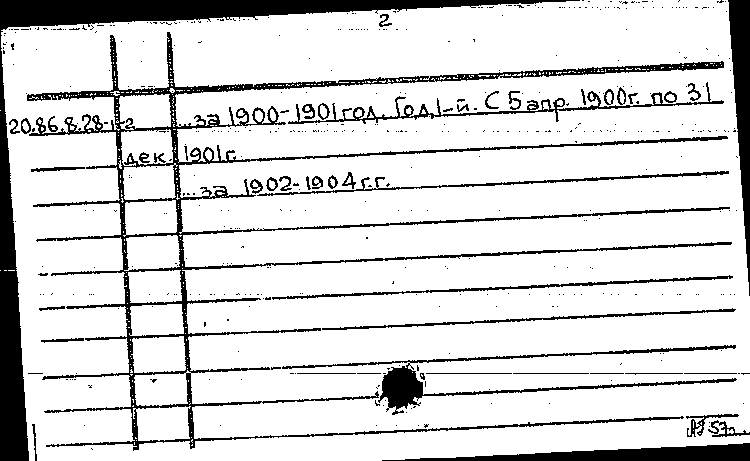 2
20.86.8.28-1-2 ...за 1900-1901 год. Год 1-й. С 5 апр. 1900г. по 31
дек. 1901г.
...за 1902-1904 г.г.
57г.